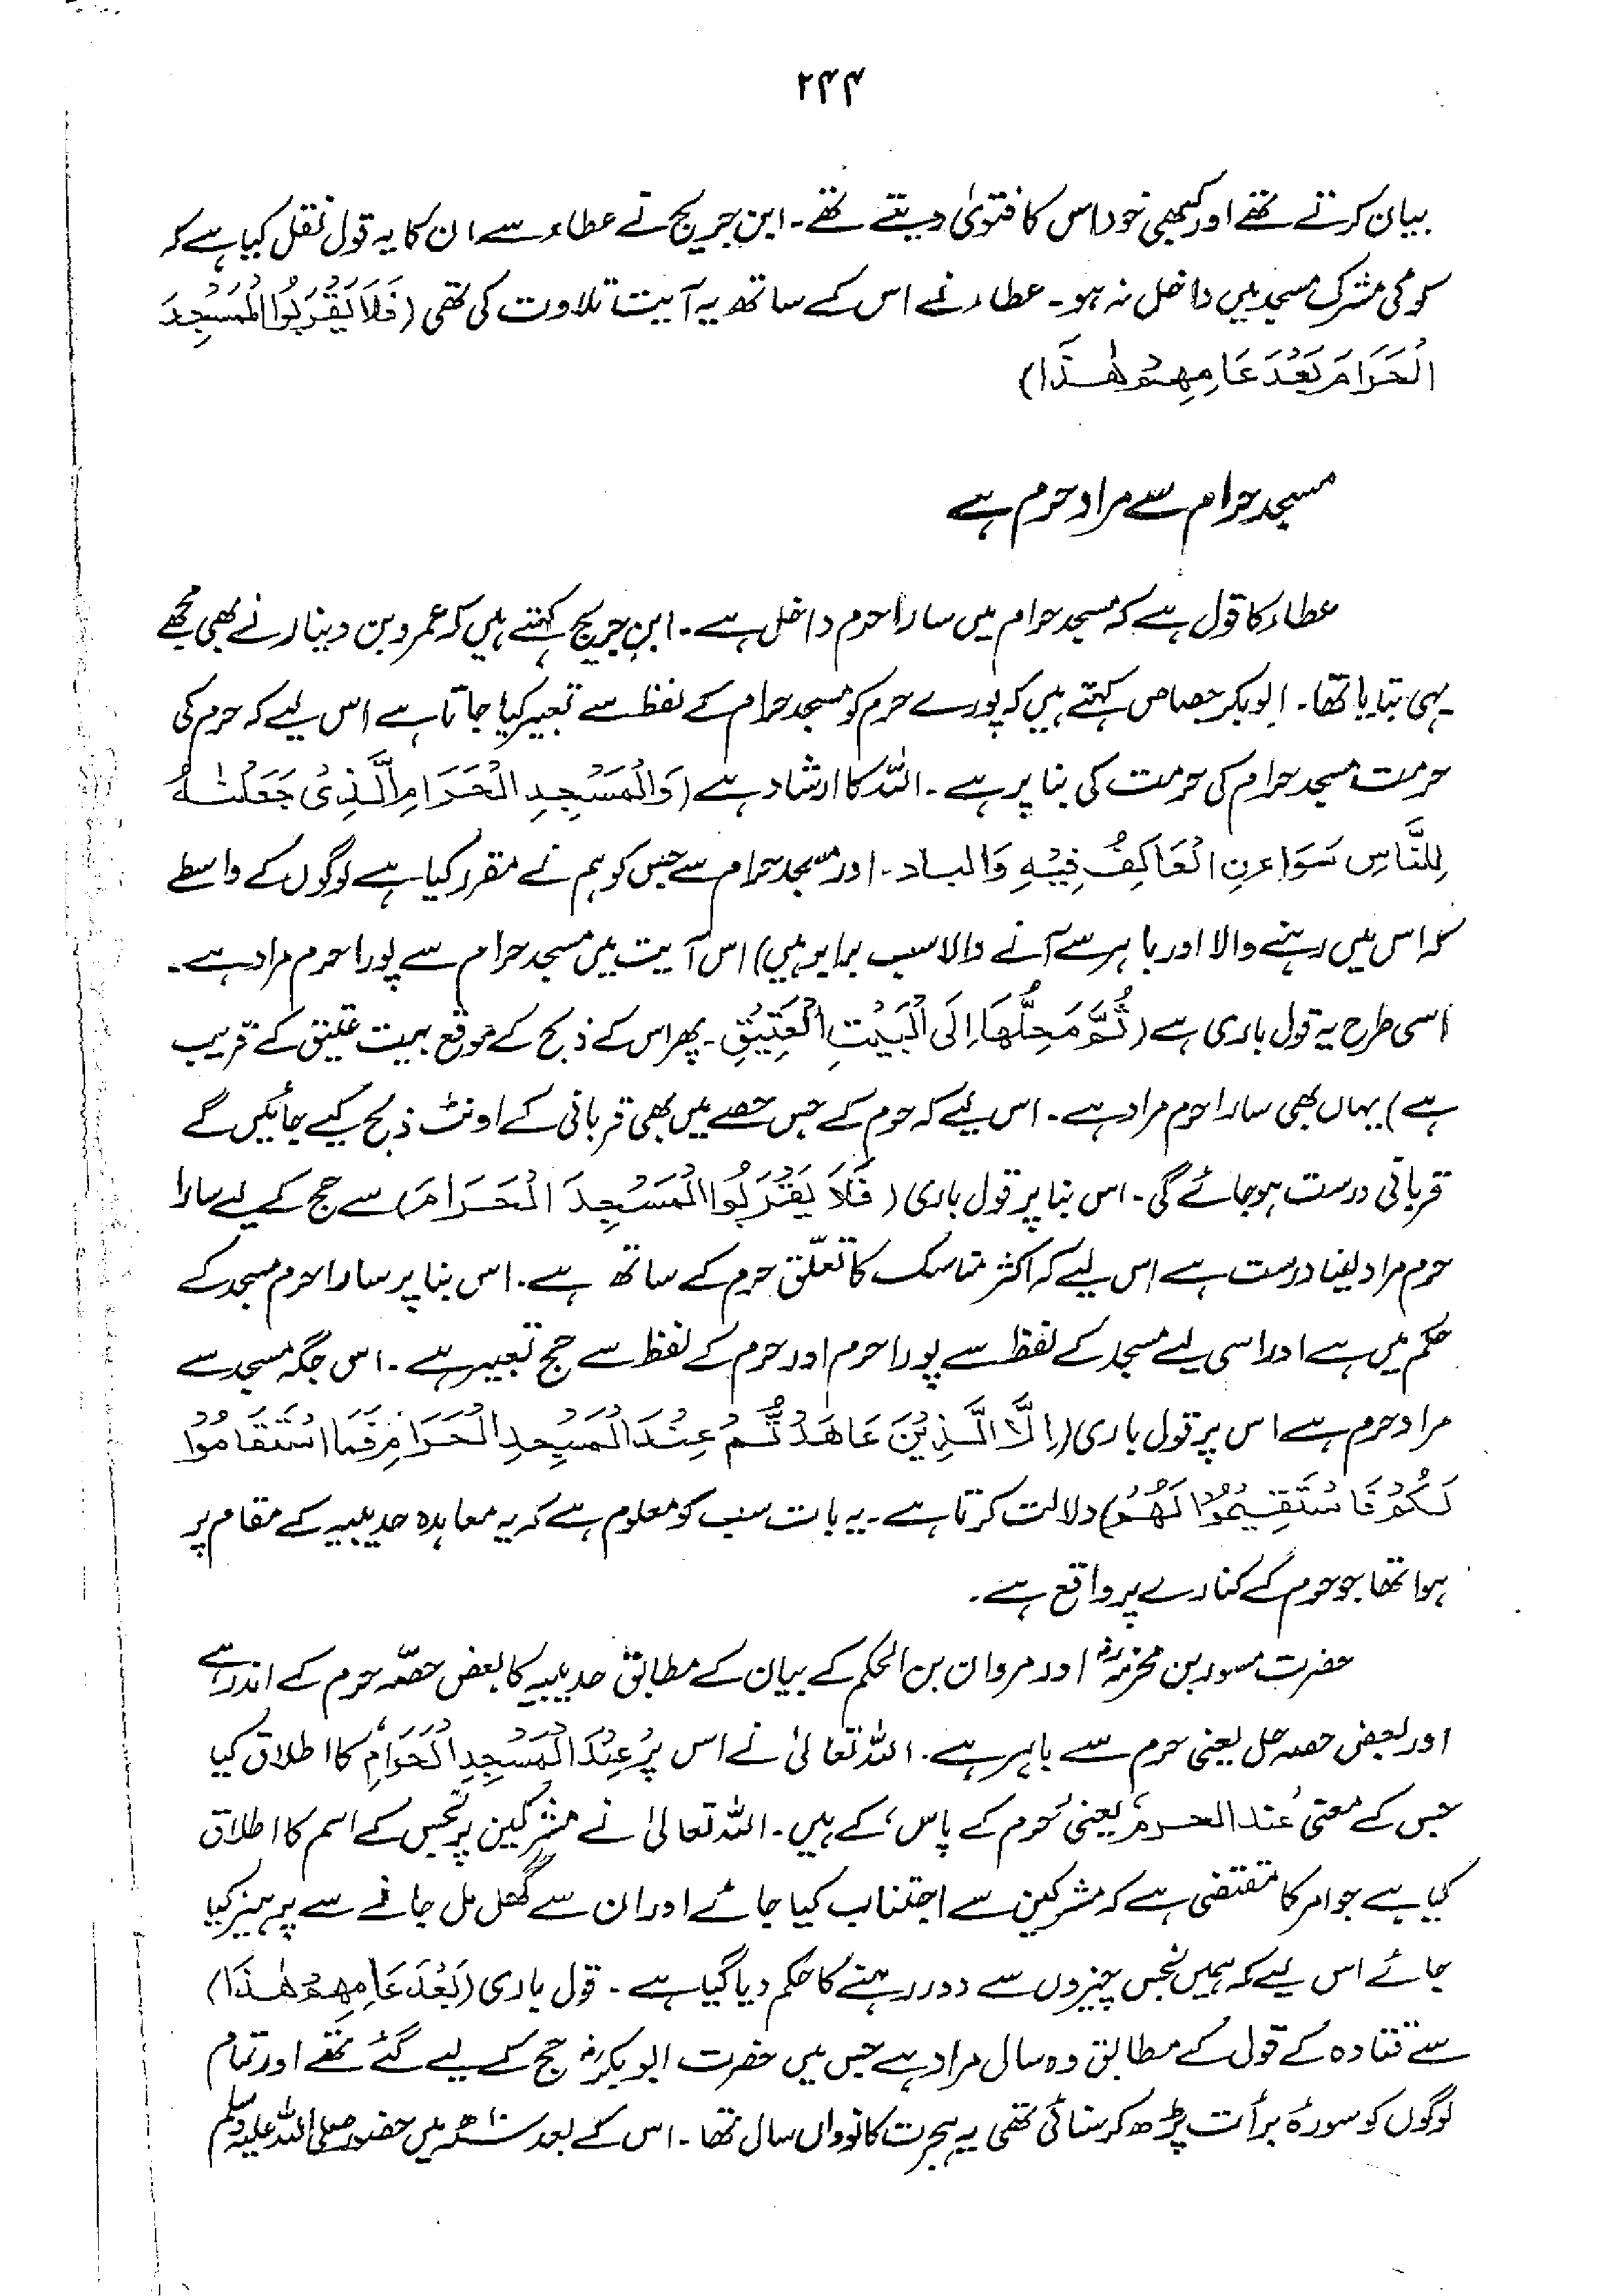 ۲۴۴
بیان کرتے تھے اور کبھی خود اس کا فتویٰ دیتے تھے۔ ابن جریج نے عطاء سے ان کا یہ قول نقل کیا ہے کہ
کوئی مشرک مسجد میں داخل نہ ہو۔ عطاء نے اس کے ساتھ یہ آیت تلاوت کی تھی (فَلَا يَقْرَبُوا الْمَسْجِدَ
الْحَرَامَ بَعْدَ عَامِهِمْ هٰذَا)
مسجد حرام سے مراد حرم ہے
عطاء کا قول ہے کہ مسجد حرام میں سارا حرم داخل ہے۔ ابن جریج کہتے ہیں کہ عمرو بن دینار نے بھی مجھے
یہی بتایا تھا۔ ابوبکر جصاص کہتے ہیں کہ پورے حرم کو مسجد حرام کے لفظ سے تعبیر کیا جاتا ہے اس لیے کہ حرم کی
حرمت مسجد حرام کی حرمت کی بنا پر ہے۔ اللہ کا ارشاد ہے (وَالْمَسْجِدِ الْحَرَامِ الَّذِیْ جَعَلْنٰهُ
لِلنَّاسِ سَوَاءَنِ الْعَاكِفُ فِيْهِ وَالباد۔ اور مسجد حرام سے جس کو ہم نے مقرر کیا ہے لوگوں کے واسطے
کہ اس میں رہنے والا اور باہر سے آنے والا سب برابر ہیں) اس آیت میں مسجد حرام سے پورا حرم مراد ہے۔
اسی طرح یہ قول باری ہے (ثُمَّ مَحِلُّهَا اِلَى الْبَيْتِ الْعَتِيْقِ۔ پھر اس کے ذبح کے موقع بیت عتیق کے قریب
ہے) یہاں بھی سارا حرم مراد ہے۔ اس لیے کہ حرم کے جس حصے میں بھی قربانی کے اونٹ ذبح کیے جائیں گے
قربانی درست ہو جائے گی۔ اس بنا پر قول باری (فَلَا يَقْرَبُوا الْمَسْجِدَ الْحَرَامَ) سے حج کے لیے سارا
حرم مراد لینا درست ہے اس لیے کہ اکثر مناسک کا تعلّق حرم کے ساتھ ہے۔ اس بنا پر سارا حرم مسجد کے
حکم میں ہے اور اسی لیے مسجد کے لفظ سے پورا حرم اور حرم کے لفظ سے حج تعبیر ہے۔ اس جگہ مسجد سے
مراد حرم ہے اس پر قول باری (اِلَّا الَّذِيْنَ عَاهَدْتُّمْ عِنْدَ الْمَسْجِدِ الْحَرَامِ فَمَا اسْتَقَامُوْا
لَكُمْ فَاسْتَقِيْمُوْا لَهُمْ) دلالت کرتا ہے۔ یہ بات سب کو معلوم ہے کہ یہ معاہدہ حدیبیہ کے مقام پر
ہوا تھا جو حرم کے کنارے پر واقع ہے۔
حضرت مسور بن مخرمہؓ اور مروان بن الحکم کے بیان کے مطابق حدیبیہ کا بعض حصّہ حرم کے اندر ہے
اور بعض حصہ حل یعنی حرم سے باہر ہے۔ اللہ تعالیٰ نے اس پر 'عِنْدَ الْمَسْجِدِ الْحَرَامِ' کا اطلاق کیا
جس کے معنی 'عند الحرم' یعنی 'حرم کے پاس' کے ہیں۔ اللہ تعالیٰ نے مشرکین پر نجس کے اسم کا اطلاق
کیا ہے جو امر کا مقتضی ہے کہ مشرکین سے اجتناب کیا جائے اور ان سے گھل مل جانے سے پرہیز کیا
جائے اس لیے کہ ہمیں نجس چیزوں سے دور رہنے کا حکم دیا گیا ہے۔ قول باری (بَعْدَ عَامِهِمْ هٰذَا)
سے قتادہ کے قول کے مطابق وہ سال مراد ہے جس میں حضرت ابوبکرؓ حج کے لیے گئے تھے اور تمام
لوگوں کو سورۂ برأت پڑھ کر سنائی تھی یہ ہجرت کا نوواں سال تھا۔ اس کے بعد ۱۰ھ میں حضور صلی اللہ علیہ وسلم